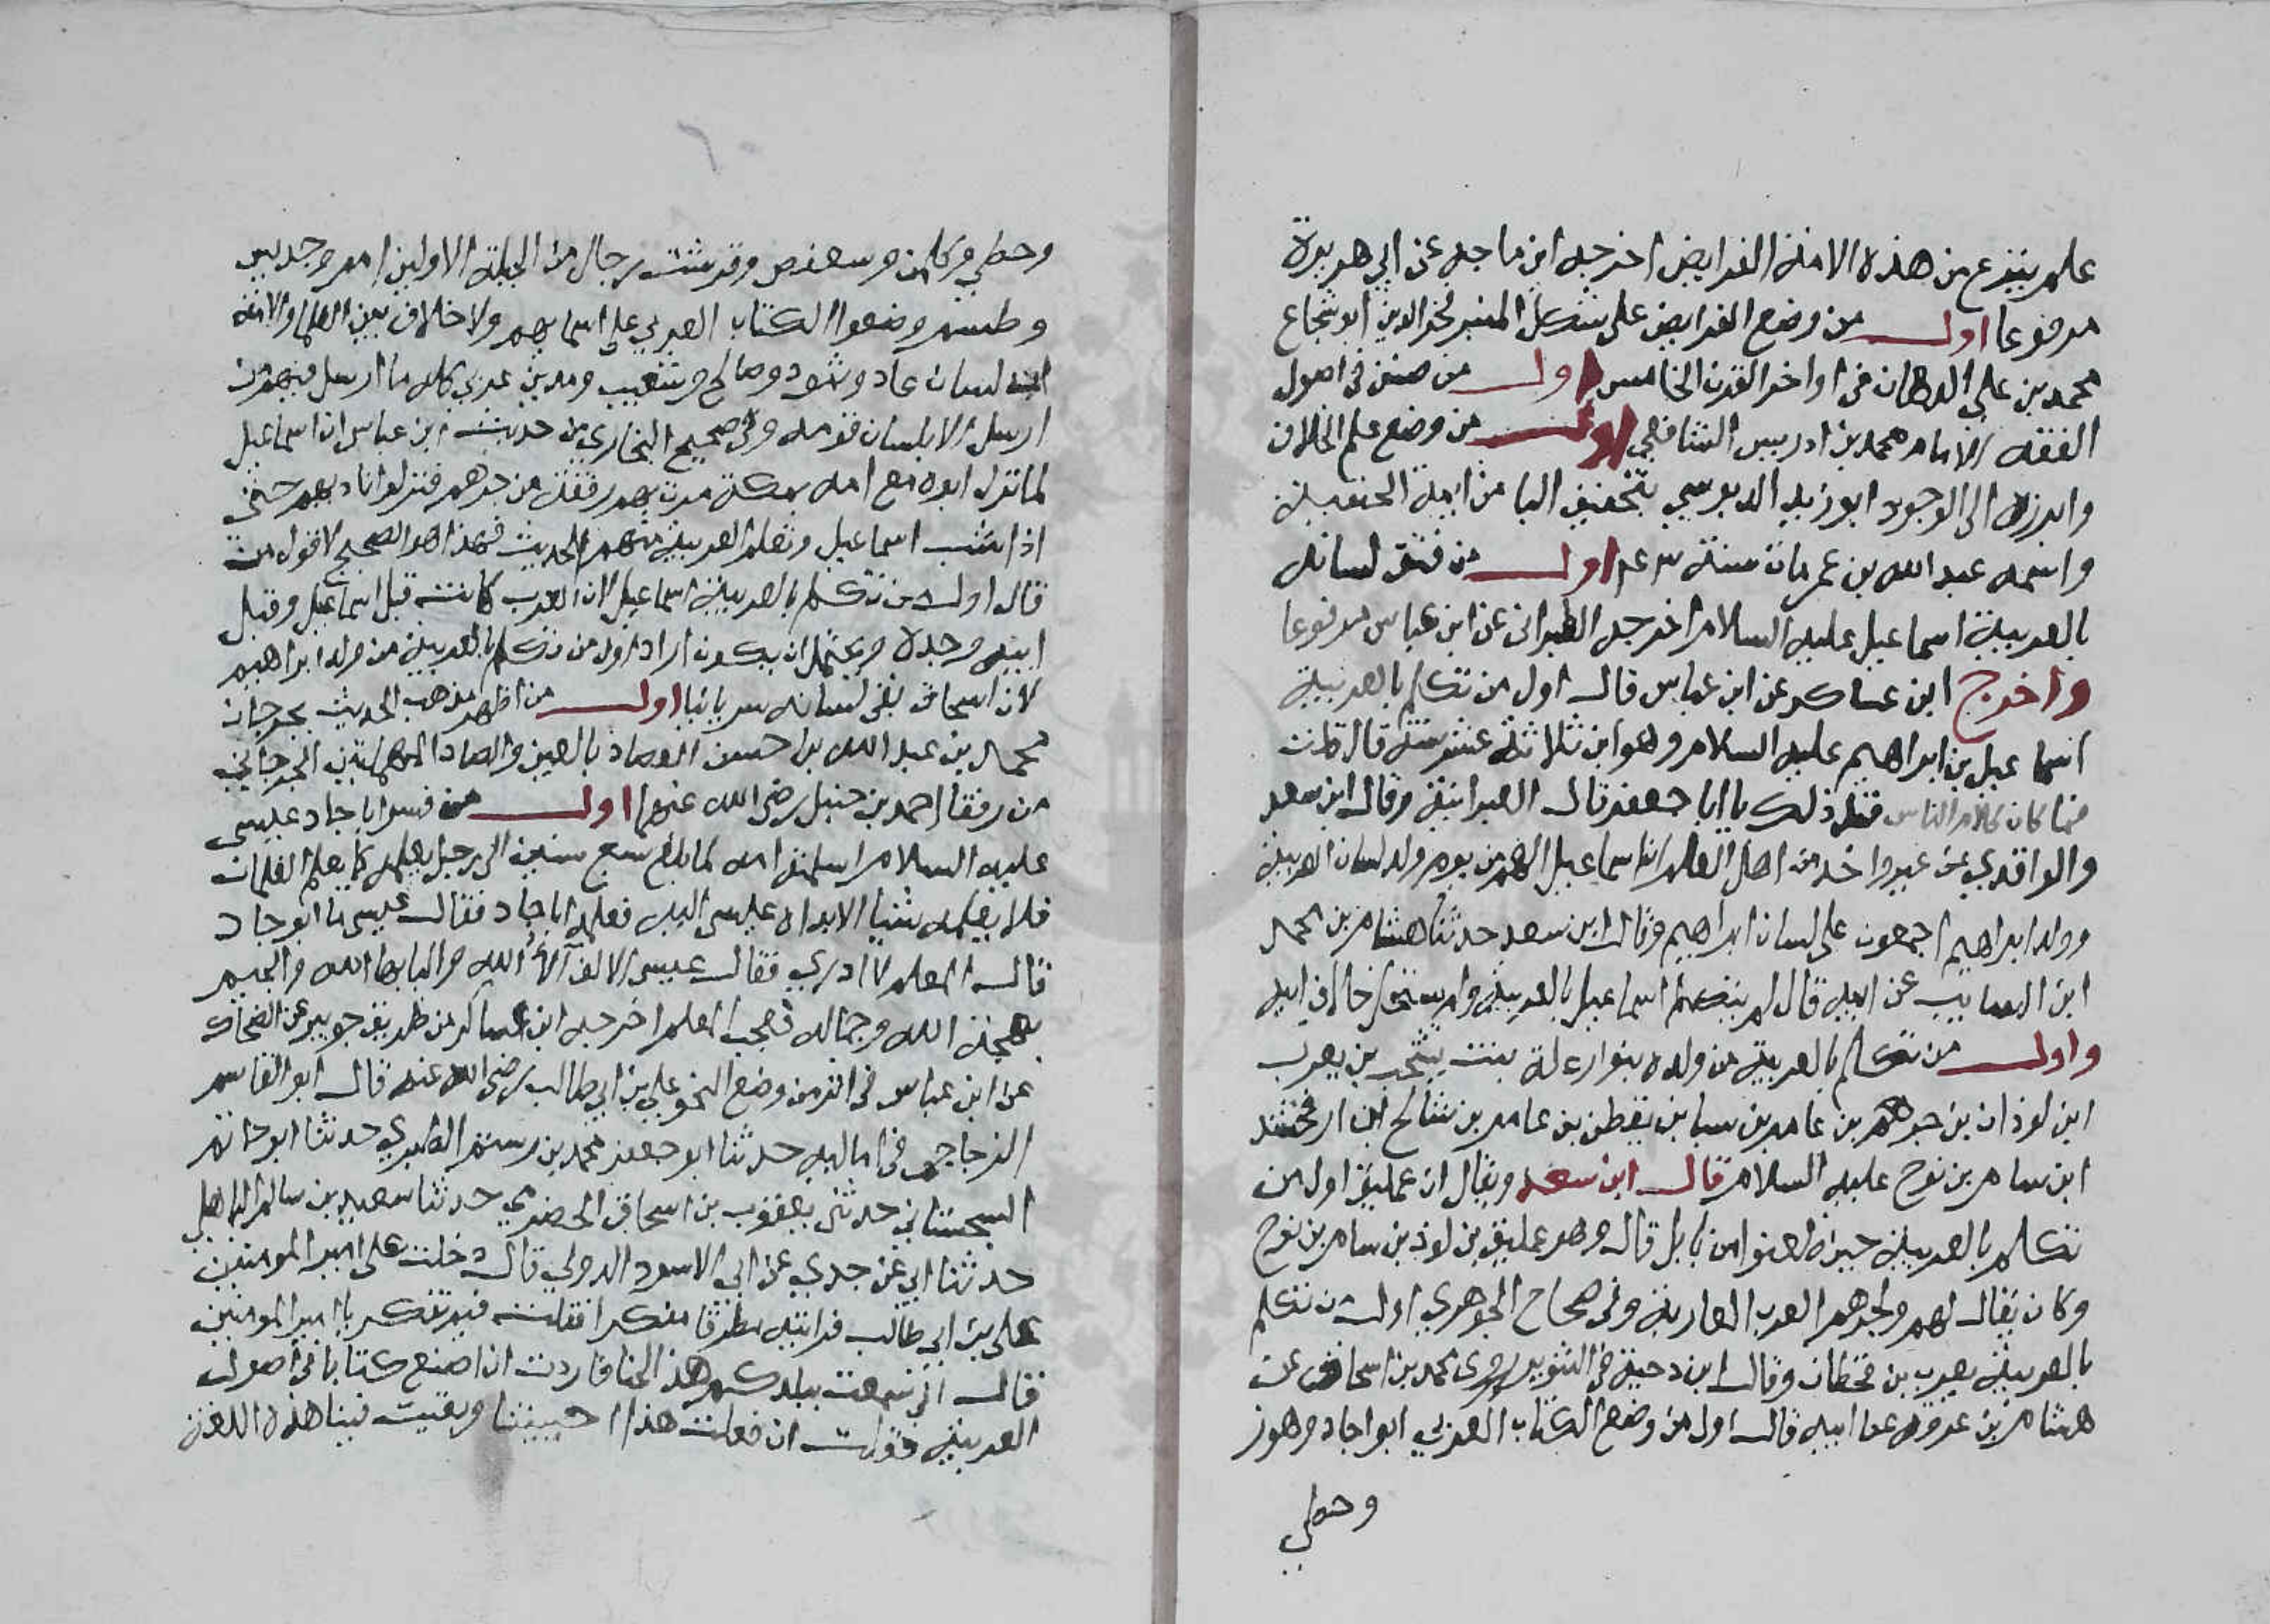 علم ينزع من هذه الامة الفرايض اخرجه ابن ماجه عن ابي هريرة
مرفوعا اول من وضع الفرايض على شكل المنبر فخر الدين ابو شجاع
محمد بن علي الدهان في اواخر القرن الخامس اول من صنف في اصول
الفقه الامام محمد بن ادريس الشافعي اول من وضع علم الخلاف
وابرزه الى الوجود ابو زيد الدبوسي بتخفيف البا من ايمة الحنفية
واسمه عبد الله بن عمر مات سنة اول من فتق لسانه
بالعربية اسماعيل عليه السلام اخرجه الطبراني عن ابن عباس مرفوعا
واخرج ابن عساكر عن ابن عباس قال اول من تكلم بالعربية
اسماعيل بن ابراهيم عليه السلام وهو ابن ثلاثة عشر سنة قال قلت
فما كان كلام الناس قبل ذلك يا ابا جعفر قال العبرانية وقال ابن سعد
والواقدي عن غير واحد من اهل العلم ان اسماعيل الهم من يوم ولد لسان العربية
وولد ابراهيم اجمعون على لسان ابراهيم وقال ابن سعد حدثنا هشام بن محمد
ابن السايب عن ابيه قال لم يتكلم اسماعيل بالعربية ولم يستحل خلاف ابيه
واول من تكلم بالعربية من ولده بنو رعلة بنت يشجب بن يعرب
ابن لوذان بن جرهم بن عامر بن سبا بن يقطن بن عامر بن شالخ ابن ارفخشد
ابن سام بن نوح عليه السلام قال ابن سعد ويقال ان عمليق اول من
تكلم بالعربية حين ظعنوا من بابل قال وهو عمليق بن لوذ بن سام بن نوح
وكان يقال لهم ولجرهم العرب العاربة وفي صحاح الجوهري اول من تكلم
بالعربية يعرب بن قحطان وقال ابن دحية في التنوير روى محمد بن اسحاق عن
هشام بن عروة عن ابيه قال اول من وضع الكتاب العربي ابو اجاد وهوز
وحطي
وحطي وكلمن وسعفص وقرشت رجال من الجبلة الاولين امم وجديس
وطسم وضعوا الكتاب العربي على اسمايهم ولا خلاف بين العلما والايمة
لسان عاد وثمود وصالح وشعيب ومدين عربي كله ما ارسل فيهم من
ارسل الا بلسان قومه وفي صحيح البخاري من حديث ابن عباس ان اسماعيل
لما تركه ابوه مع امه بمكة مرت بهم رفقة من جرهم فنزلوا ناديهم حتى
اذا شب اسماعيل وتعلم العربية منهم الحديث فهذا هو الصحيح لا قول من
قال اول من تكلم بالعربية اسماعيل لان العرب كانت قبل اسماعيل وقبل
ابيه وجده ويحتمل ان يكون اراد اول من تكلم بالعربية من ولد ابراهيم
لان اسحاق بقى لسانه سريانيا اول من اظهر مذهب الحديث بجرجان
محمد بن عبد الله بن حسين العصار بالعين والصاد المهملتين الجرجاني
من رفقا احمد بن حنبل رضي الله عنهما اول من فسر ابا جاد عيسى
عليه السلام اسلمته امه لما بلغ سبع سنين الى رجل يعلمه كما يعلم الغلمان
فلا يعلمه شيا الا بدره عيسى اليه فعلمه ابا جاد فقال عيسى ما ابو جاد
قال المعلم لا ادري فقال عيسى الالف آلاء الله والبا بها الله والجيم
بهجة الله وجماله فعجب المعلم اخرجه ابن عساكر من طريق جويبر عن الضحاك
عن ابن عباس في اثر من وضع النحو علي بن ابي طالب رضي الله عنه قال ابو القاسم
الزجاجي في اماليه حدثنا ابو جعفر محمد بن رستم الطبري حدثنا ابو حاتم
السجستاني حدثني يعقوب بن اسحاق الحضرمي حدثنا سعيد بن سالم الباهلي
حدثنا ابي عن جدي عن ابي الاسود الدولي قال دخلت على امير المومنين
علي بن ابي طالب فرايته مطرقا مفكرا فقلت فيم تفكر يا امير المومنين
قال اني سمعت ببلدكم هذا لحنا فاردت ان اصنع كتابا في اصول
العربية فقلت ان فعلت هذا احييتنا وبقيت فينا هذه اللغة